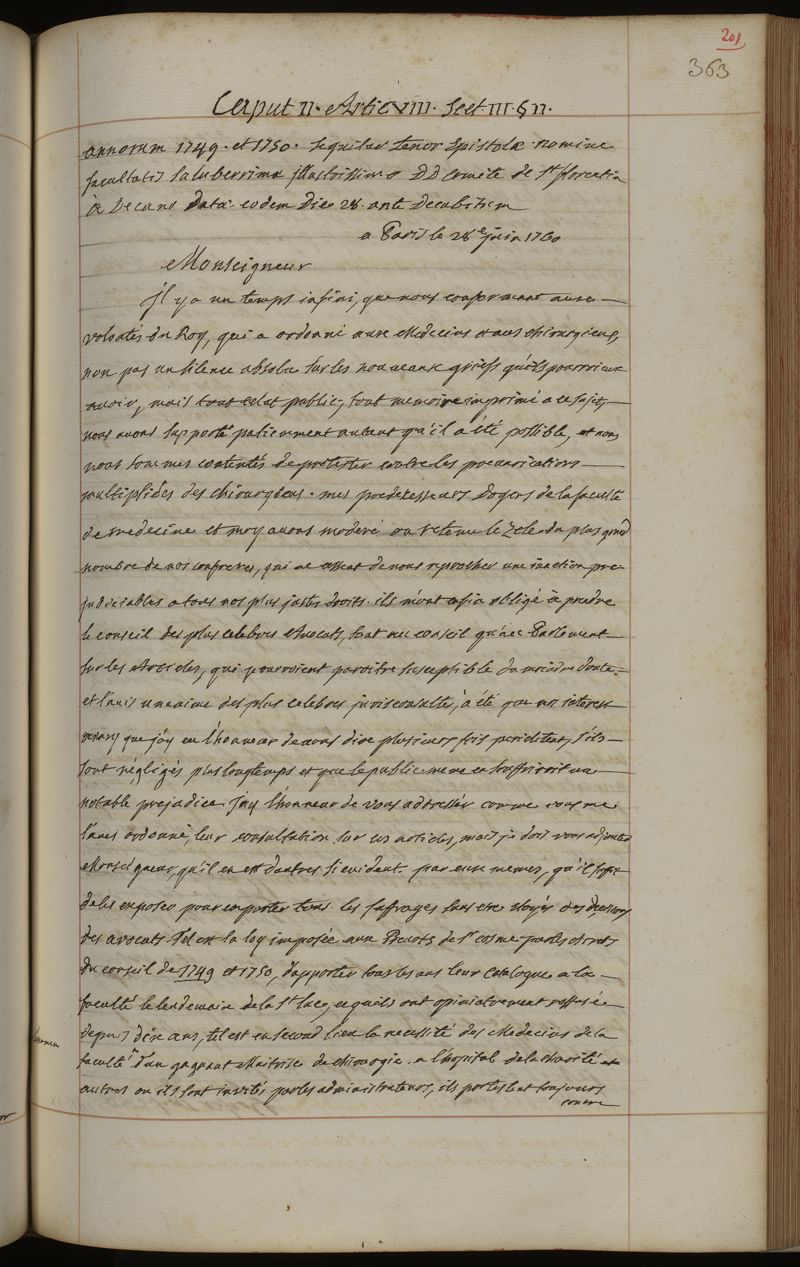 201
363
Caput II. Artic VIII. Sect. III. § II.
annorum 1749. et 1750. sequitur tenor Epistolæ nomine
facultatis saluberrimæ illustrissimo DD comite de St florentin
à Decano data eodem die 28. ante decubitum
a Paris le 28e juin 1760
Monseigneur
Il y a un temps infini, que nous conformant aux
volontés du Roy, qui a ordonné aux Medecins et aux chirurgiens,
non pas un silence absolu sur les nouveaux griefs qu'ils pourroient
avoir, mais tout eclat public, tout memoire imprimé a ce sujet,
nous avons supporté patiemment autant qu'il a été possible, et nous
nous sommes contentés de protester contre les prevarications
multipliées des chirurgiens. mes predecesseurs Doyens de la faculté
de medecine et moy avons moderé ou retenu le zele du plus grand
nombre de nos confreres, qui ne cessent de nous reprocher une inaction pre-
judiciables a tous nos plus justes droits. ils m'ont enfin obligé à prendre
le conseil des plus celebres Avocats, tant au conseil qu'au Parlement
sur les Articles, qui pourroient paroitre susceptible du moindre doute
et l'avis unanime des plus celebres jurisconsultes, a été que nos interests
que j'ay eu l'honneur de vous dire plusieurs fois periclitent, s'ils
sont négligés plus longtemps et que le public meme en souffriroit un
notable prejudice. j'ay l'honneur de vous addresser comme vous me
l'avez ordonné, leur consultation sur ces articles, mais je dois vous adjouter
Monseigneur, qu'il en est d'autres si evident par eux memes, qu'il suffit
de les exposer pour emporter tous les suffrages sans etre etayés des decisions
des avocats. Tel est la loy imposée aux Prevots de St cosme par les arrets
du conseil de 1749 et 1750, d'apporter tous les ans leur Catalogue a la
faculté le lendemain de la St luc, ce qu'ils ont opiniatrement refusé
depuis dix ans, tel est en second lieu la necessité des Medecins de la
faculté d'un gagnant Maitrise de chirurgie a l'hopital de la charité et
autres ou ils sont invités par les administrateurs, ils protestent toujours
contre